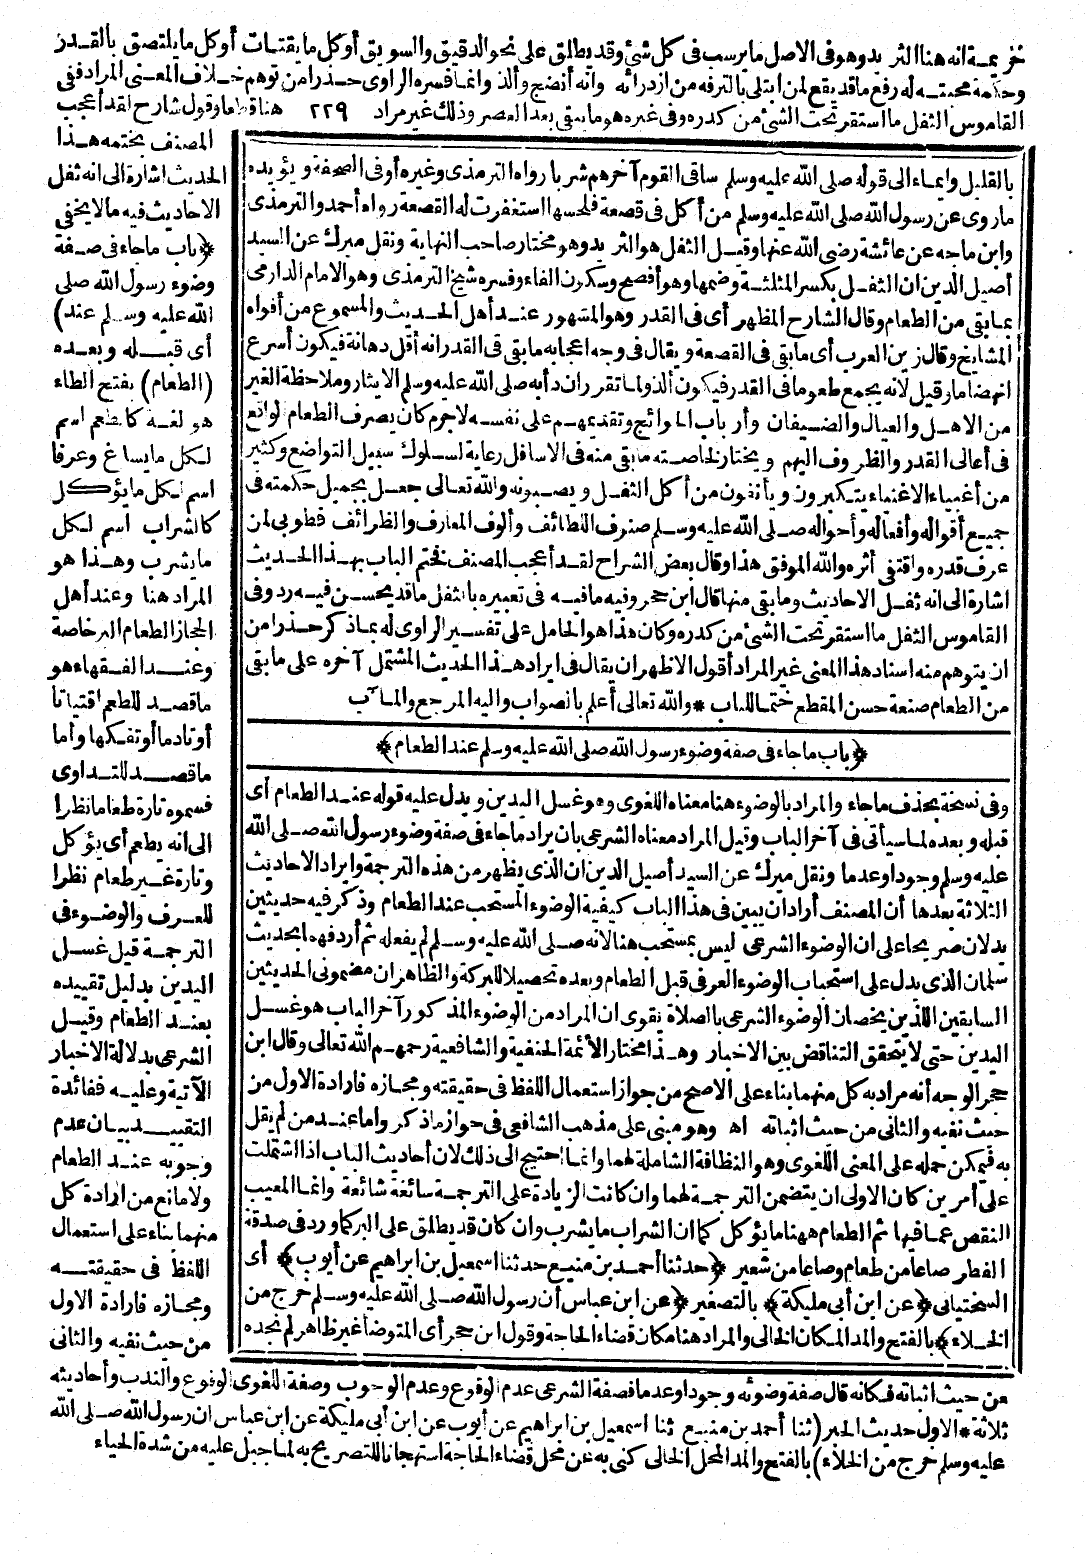 خزيمة انه هنا الثريد وهو في الاصل ما يرسب في كل شئ وقد يطلق على نحو الدقيق والسويق أو كل ما يقتات أو كل ما يلتصق بالقدر
وحكمة محبته له رفع ما قد يقع لمن ابتلى بالترفه من ازدرائه وانه أنضج وألذ وانما فسره الراوى حذرا من توهم خلاف المعنى المراد ففى
القاموس الثفل ما استقر تحت الشئ من كدره وفى غيره هو ما يبقى بعد العصر وذلك غير مراد ٢٢٩ هنا قطعا وقول شارح لقد أعجب
المصنف بختمه هذا
الحديث اشارة الى انه ثفل
الاحاديث فيه ما لا يخفى
﴿باب ما جاء فى صفة
وضوء رسول الله صلى
الله عليه وسلم عند﴾
أى قبله وبعده
(الطعام) بفتح الطاء
هو لغة كالطعم اسم
لكل ما يساغ وعرفا
اسم لكل ما يؤكل
كالشراب اسم لكل
ما يشرب وهذا هو
المراد هنا وعند أهل
الحجاز الطعام البر خاصة
وعند الفقهاء هو
ما قصد للطعم اقتياتا
أو تأدما أو تفكها وأما
ما قصد للتداوى
فسموه تارة طعاما نظرا
الى انه يطعم أى يؤكل
وتارة غير طعام نظرا
للعرف والوضوء فى
الترجمة قيل غسل
اليدين بدليل تقييده
بعند الطعام وقيل
الشرعى بدلالة الاخبار
الآتية وعليه ففائدة
التقييد بيان عدم
وجوبه عند الطعام
ولا مانع من ارادة كل
منهما بناء على استعمال
اللفظ فى حقيقته
ومجازه فارادة الاول
من حيث نفيه والثانى
بالقليل وايماء الى قوله صلى الله عليه وسلم ساقى القوم آخرهم شربا رواه الترمذى وغيره أو فى الصحفة ويؤيده
ما روى عن رسول الله صلى الله عليه وسلم من أكل فى قصعة فلحسها استغفرت له القصعة رواه أحمد والترمذى
وابن ماجه عن عائشة رضى الله عنها وقيل الثفل هو الثريد وهو مختار صاحب النهاية ونقل ميرك عن السيد
أصيل الدين ان الثفل بكسر المثلثة وضمها وهو أفصح وسكون الفاء وفسره شيخ الترمذى وهو الامام الدارمى
بما بقى من الطعام وقال الشارح المظهر أى فى القدر وهو المشهور عند أهل الحديث والمسموع من أفواه
المشايخ وقال زين العرب أى ما بقى فى القصعة ويقال فى وجه اعجابه ما بقى فى القدر انه أقل دهانة فيكون أسرع
انهضاما وقيل لانه يجمع طعوم ما فى القدر فيكون ألذ ولما تقرر ان دأبه صلى الله عليه وسلم الايثار وملاحظة الغير
من الاهل والعيال والضيفان وأرباب الحوائج وتقديمهم على نفسه لا جرم كان يصرف الطعام الواقع
فى أعالى القدر والظروف اليهم ويختار لخاصته ما بقى منه فى الاسافل رعاية لسلوك سبيل التواضع وكثير
من أغنياء الاغنياء يتكبرون ويأنفون من أكل الثفل ويصبونه والله تعالى جعل بجميل حكمته فى
جميع أقواله وأفعاله وأحواله صلى الله عليه وسلم صنوف اللطائف وألوف المعارف والظرائف فطوبى لمن
عرف قدره واقتفى أثره والله الموفق هذا وقال بعض الشراح لقد أعجب المصنف فختم الباب بهذا الحديث
اشارة الى انه ثفل الاحاديث وما بقى منها قال ابن حجر وفيه ما فيه فى تعبيره بالثفل ما قد يحسن فيه رد وفى
القاموس الثفل ما استقر تحت الشئ من كدره وكان هذا هو الحامل على تفسير الراوى له بما ذكر حذرا من
ان يتوهم منه اسناد هذا المعنى غير المراد أقول الاظهر ان يقال فى ايراد هذا الحديث المشتمل آخره على ما بقى
من الطعام صنعة حسن المقطع ختما للباب * والله تعالى أعلم بالصواب واليه المرجع والمآب
﴿باب ما جاء فى صفة وضوء رسول الله صلى الله عليه وسلم عند الطعام﴾
وفى نسخة بحذف ما جاء والمراد بالوضوء هنا معناه اللغوى وهو غسل اليدين ويدل عليه قوله عند الطعام أى
قبله وبعده لما سيأتى فى آخر الباب وقيل المراد معناه الشرعى بان يراد ما جاء فى صفة وضوء رسول الله صلى الله
عليه وسلم وجودا وعدما ونقل ميرك عن السيد أصيل الدين ان الذى يظهر من هذه الترجمة وايراد الاحاديث
الثلاثة بعدها أن المصنف أراد ان يبين فى هذا الباب كيفية الوضوء المستحب عند الطعام وذكر فيه حديثين
يدلان صريحا على ان الوضوء الشرعى ليس بمستحب هنا لانه صلى الله عليه وسلم لم يفعله ثم أردفهما بحديث
سلمان الذى يدل على استحباب الوضوء العرفى قبل الطعام وبعده تحصيلا للبركة والظاهر ان مضمونى الحديثين
السابقين اللذين يخصان الوضوء الشرعى بالصلاة نقوى ان المراد من الوضوء المذكور آخر الباب هو غسل
اليدين حتى لا يتحقق التناقض بين الاخبار وهذا مختار الأئمة الحنفية والشافعية رحمهم الله تعالى وقال ابن
حجر الوجه أنه مراد به كل منهما بناء على الاصح من جواز استعمال اللفظ فى حقيقته ومجازه فارادة الاول من
حيث نفيه والثانى من حيث اثباته اه وهو مبنى على مذهب الشافعى فى جواز ما ذكر وأما عند من لم يقل
به فيمكن حمله على المعنى اللغوى وهو النظافة الشاملة لهما وانما احتيج الى ذلك لان أحاديث الباب اذا اشتملت
على أمرين كان الاولى ان يتضمن الترجمة لهما وان كانت الزيادة على الترجمة سائغة شائعة وانما المعيب
النقص عما فيها ثم الطعام ههنا ما يؤكل كما ان الشراب ما يشرب وان كان قد يطلق على البر كما ورد فى صدقة
الفطر صاعا من طعام وصاعا من شعير ﴿حدثنا أحمد بن منيع حدثنا اسمعيل بن ابراهيم عن أيوب﴾ أى
السختيانى ﴿عن ابن أبى مليكة﴾ بالتصغير ﴿عن ابن عباس أن رسول الله صلى الله عليه وسلم خرج من
الخلاء﴾ بالفتح والمد المكان الخالى والمراد هنا مكان قضاء الحاجة وقول ابن حجر أى المتوضأ غير ظاهر لم نجده
من حيث اثباته فكانه قال صفة وضوئه وجودا وعدما فصفة الشرعى عدم الوقوع وعدم الوجوب وصفة اللغوى الوقوع والندب وأحاديثه
ثلاثة * الاول حديث الحبر (ثنا أحمد بن منيع ثنا اسمعيل بن ابراهيم عن أيوب عن ابن أبى مليكة عن ابن عباس ان رسول الله صلى الله
عليه وسلم خرج من الخلاء) بالفتح والمد المحل الخالى كنى به عن محل قضاء الحاجة استهجانا للتصريح به لما جبل عليه من شدة الحياء